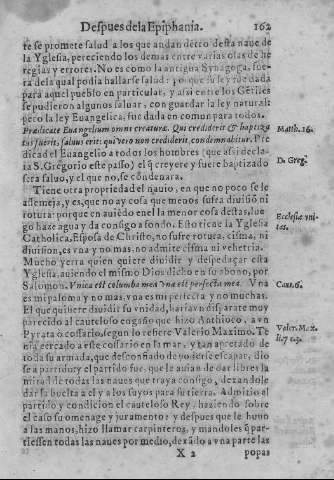 Despues de la Epiphania. 162
te se promete salud a los que andan dẽtro desta naue de
la Yglesia, pereciendo los demas entre varias olas de he
regias y errores. No es como la antigua Synagoga, fue-
ra de la qual podia hallarse salud: porque su ley fue dada
para aquel pueblo en particular, y assi entre los Gẽtiles
se pudieron algunos saluar, con guardar la ley natural:
pero la ley Euangelica, fue dada en comun para todos.
Prædicate Euangelium omni creaturæ. Qui crediderit & baptiza-
tus fuerit, saluus erit: qui vero non crediderit, condemnabitur. Pre
Matth. 16.
dicad el Euangelio a todos los hombres (que assi decla-
ra S. Gregorio este passo) el q̃ creyere y fuere baptizado
D. Greg.
sera saluo, y el que no, se cõdenara.
Tiene otra propriedad el nauio, en que no poco se le
assemeja, y es, que no ay cosa que menos sufra diuisiõ ni
rotura: porque en auiẽdo en el la menor cosa destas, lue-
go haze agua y da consigo a fondo. Esto tiene la Yglesia
Ecclesiæ vni-
tas.
Catholica, Esposa de Christo, no sufre rotura, cisma, ni
diuision, es vna y no mas, no admite cisma ni vehetria.
Mucho yerra quien quiere diuidir y despedaçar esta
Yglesia, auiendo el mismo Dios dicho en su abono, por
Salomon. Vnica est columba mea vna est perfecta mea. Vna
Cant. 6.
es mi paloma y no mas, vna es mi perfecta y no muchas.
El que quisiere diuidir su vnidad, haria vn disparate muy
parecido al cauteloso engaño que hizo Anthioco, a vn
Pyrata o cossario, segun lo refiere Valerio Maximo. Te
Valer. Max.
li. 7
nia cercado a este cossario en la mar, y tan apretado de
toda su armada, que desconfiado de poderse escapar, dio
se a partido: y el partido fue, que le auian de dar libres la
mitad de todas las naues que traya consigo, dexandole
dar la buelta a el y a los suyos para su tierra. Admitio al
partido y condicion el cauteloso Rey, haziendo sobre
el caso su omenage y juramento: y despues que le huuo
a las manos, hizo llamar carpinteros, y mandoles q̃ par-
tiessen todas las naues por medio, dexãdo a vna parte las
X 2 popas